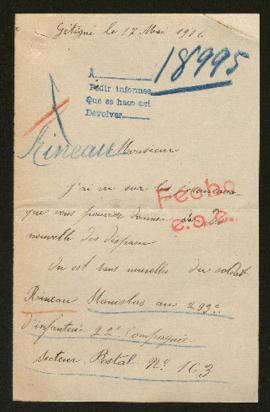 Gétigné le 17 Mai 1916
18995
À
Pedir informes
Que se hace así
Devolver
Rineau
Monsieur
j'ai vu sur les journaux
que vous pouviez donner des
nouvelle des disparu
Fecho
On est sans nouvelles du soldat
Rineau Stanislas au 293e
d'infanterie 22e Compagnie
secteur Postal No 163